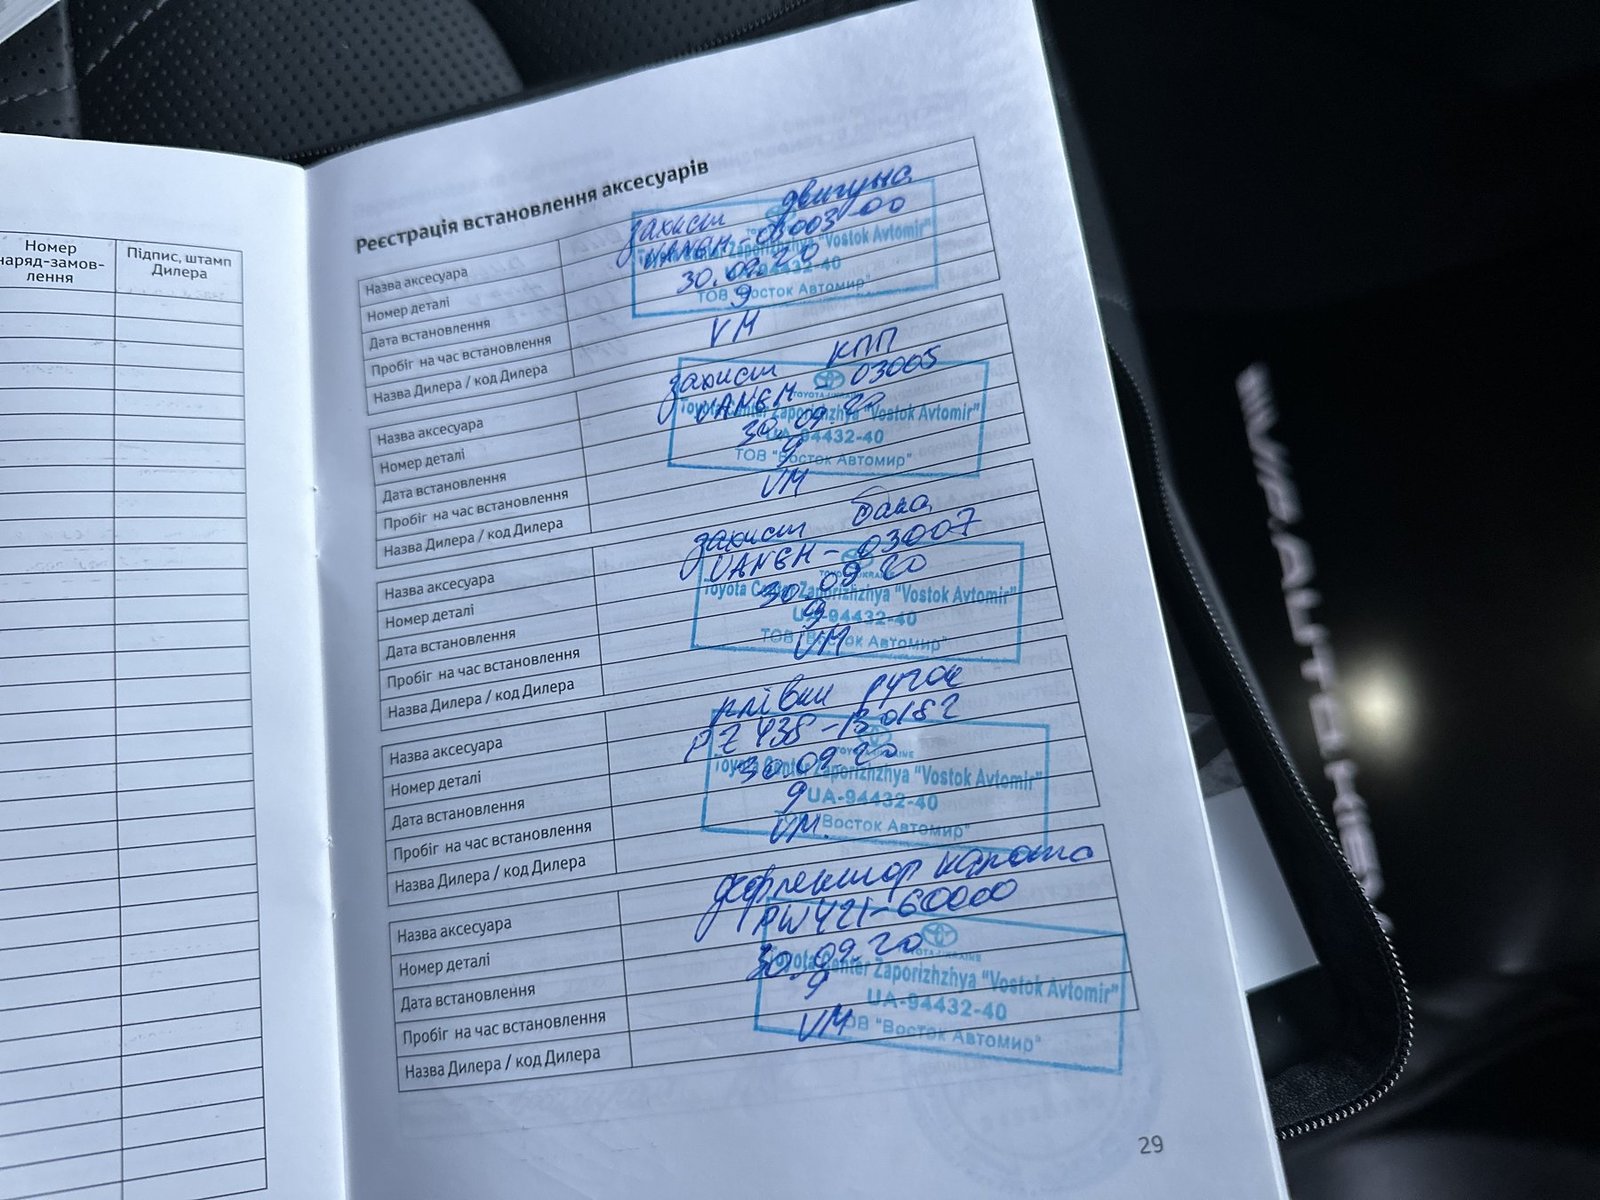 Номер
наряд-замов-
лення
Підпис, штамп
Дилера
Реєстрація встановлення аксесуарів
Назва аксесуара захист двигуна
Номер деталі UANGH-03003-00
Дата встановлення 30.09.20
Пробіг на час встановлення 9
Назва Дилера / код Дилера VM
Zaporizhzhya "Vostok Avtomir"
ТОВ "Восток Автомир"
Назва аксесуара захист КПП
Номер деталі UANGH-03005
Дата встановлення 30.09.20
Пробіг на час встановлення 9
Назва Дилера / код Дилера VM
TOYOTA UKRAINE
Toyota Center Zaporizhzhya "Vostok Avtomir"
UA-94432-40
ТОВ "Восток Автомир"
Назва аксесуара захист бака
Номер деталі UANGH-03007
Дата встановлення 30.09.20
Пробіг на час встановлення 9
Назва Дилера / код Дилера VM
TOYOTA UKRAINE
Toyota Center Zaporizhzhya "Vostok Avtomir"
UA-94432-40
ТОВ "Восток Автомир"
Назва аксесуара плівки ручок
Номер деталі PZ438-B0182
Дата встановлення 30.09.20
Пробіг на час встановлення 9
Назва Дилера / код Дилера VM.
TOYOTA UKRAINE
Toyota Center Zaporizhzhya "Vostok Avtomir"
UA-94432-40
ТОВ "Восток Автомир"
Назва аксесуара дефлектор капота
Номер деталі PW421-60000
Дата встановлення 30.09.20
Пробіг на час встановлення 9
Назва Дилера / код Дилера VM
TOYOTA UKRAINE
Toyota Center Zaporizhzhya "Vostok Avtomir"
UA-94432-40
ТОВ "Восток Автомир"
29